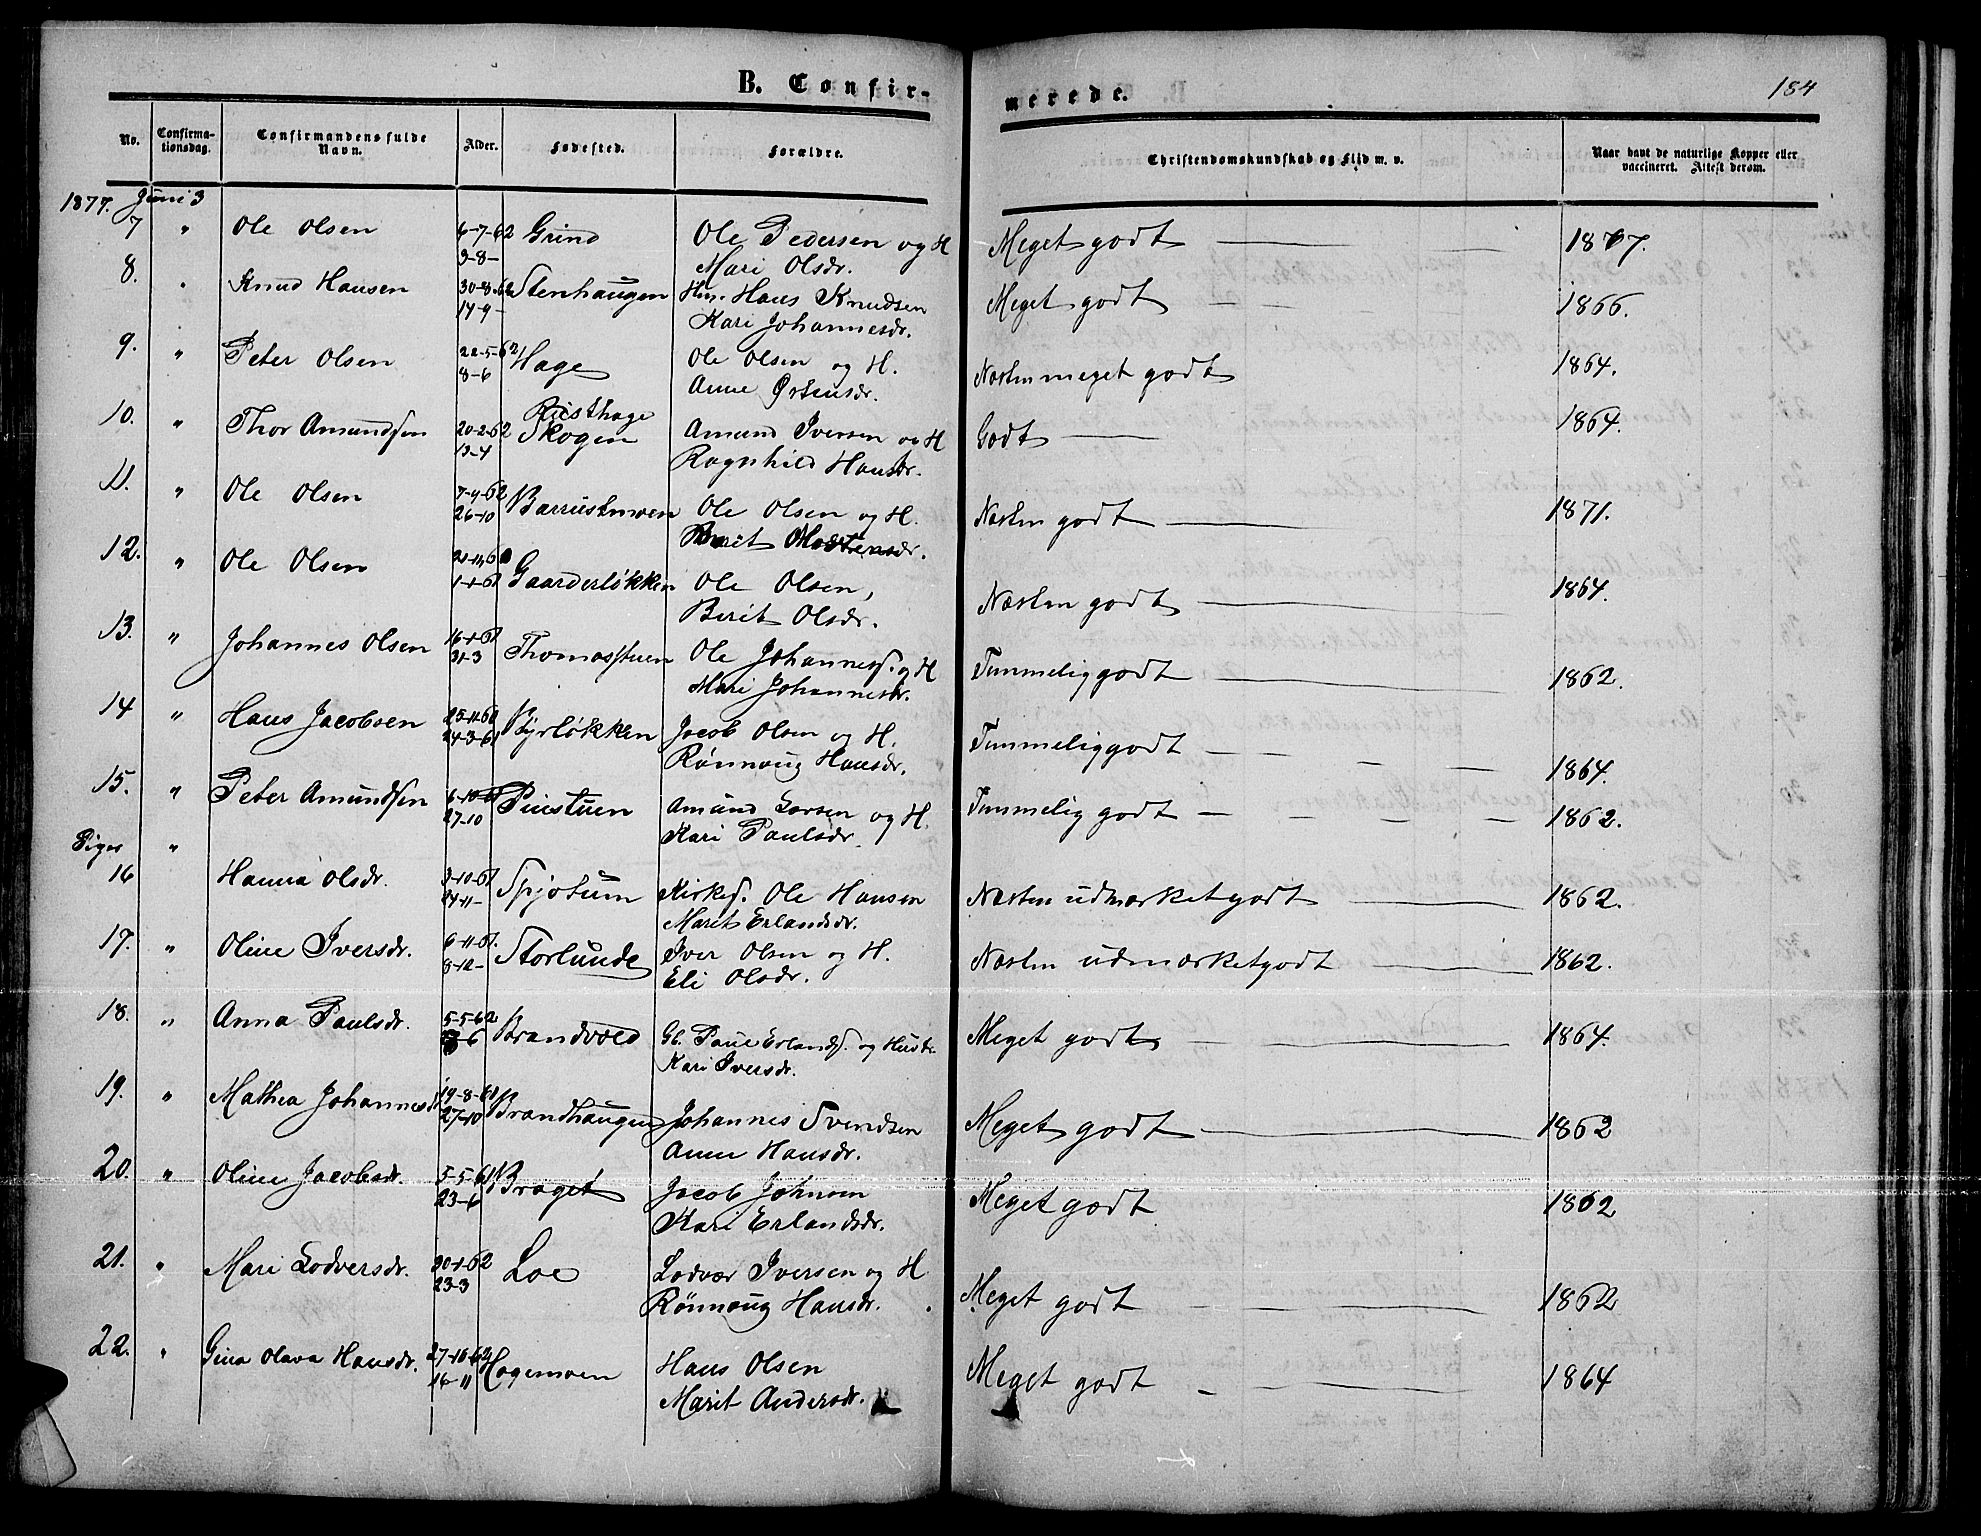 B. Confir-
merede.
184
No.
Confirma-
tionsdag.
Confirmandens fulde
Navn.
Alder.
Fødested.
Forældre.
Christendomskundskab og Flid m. v.
Naar havt de naturlige Kopper eller
vaccineret. Attest derom.
1877. Juni 3
7 " Ole Olsen 6-7-62 Grind Ole Pedersen og H Meget godt 1867.
9-8- Mari Olsdr.
8. " Knud Hansen 30-8-62 Stenhaugen Hm. Hans Knudsen Meget godt 1866.
14-9- Kari Johannesdr.
9. " Peter Olsen 22-5-62 Hage Ole Olsen og H. Næsten meget godt 1864.
8-6 Anne Østensdr.
10. " Thor Amundsen 20-2-62 Rusthage Skogen Amund Iversen og H Godt 1864.
13-4 Ragnhild Hansdr.
11. " Ole Olsen 7-9-62 Barrustmoen Ole Olsen og H. Næsten godt 1871.
26-10 Berit
12. " Ole Olsen Gaarderløkken Ole Olsen, Næsten godt 1864.
1-1-61 Berit Olsdr.
13. " Johannes Olsen 16-1-61 Thomasstuen Ole Johanness. og H Temmelig godt 1862.
31-3 Mari Johannesdr.
14 " Hans Jacobsen 25-11-60 Byrløkken Jacob Olsen og H. Temmelig godt 1864.
24-3-61 Rønnaug Hansdr.
15. " Peter Amundsen 6-10-61 Piustuen Amund Larsen og H. Temmelig godt 1862.
27-10 Kari Paulsdr.
Piger "
16 Hanna Olsdr. 3-10-61 Spjotum Kirkes. Ole Hansen Næsten udmærket godt 1862.
24-11- Marit Erlandsdr.
17. " Oline Iversdr. 6-11-61. Storlunde Iver Olsen og H. Næsten udmærket godt 1862.
8-12- Eli Olsdr.
18. " Anna Paulsdr. 5-5-62 Brandvold Gb. Paul Erlands. og Hustr. Meget godt 1864.
Kari Iversdr.
19. " Mathea Johannesdr 19-8-61 Brandhaugen Johannes Svendsen Meget godt 1862
27-10 Anne Hansdr.
20. " Oline Jacobsdr. 5-5-61 Braget Jacob Johnsen Meget godt 1862
23-6 Kari Erlandsdr.
21. " Mari Lodversdr. 30-1-62 Loe Lodvær Iversen og H Meget godt 1862
23-3 Rønnaug Hansdr.
22. " Gina Olava Hansdr. 27-10-62 Hagemoen Hans Olsen Meget godt 1864
16-11 Marit Andersdr.